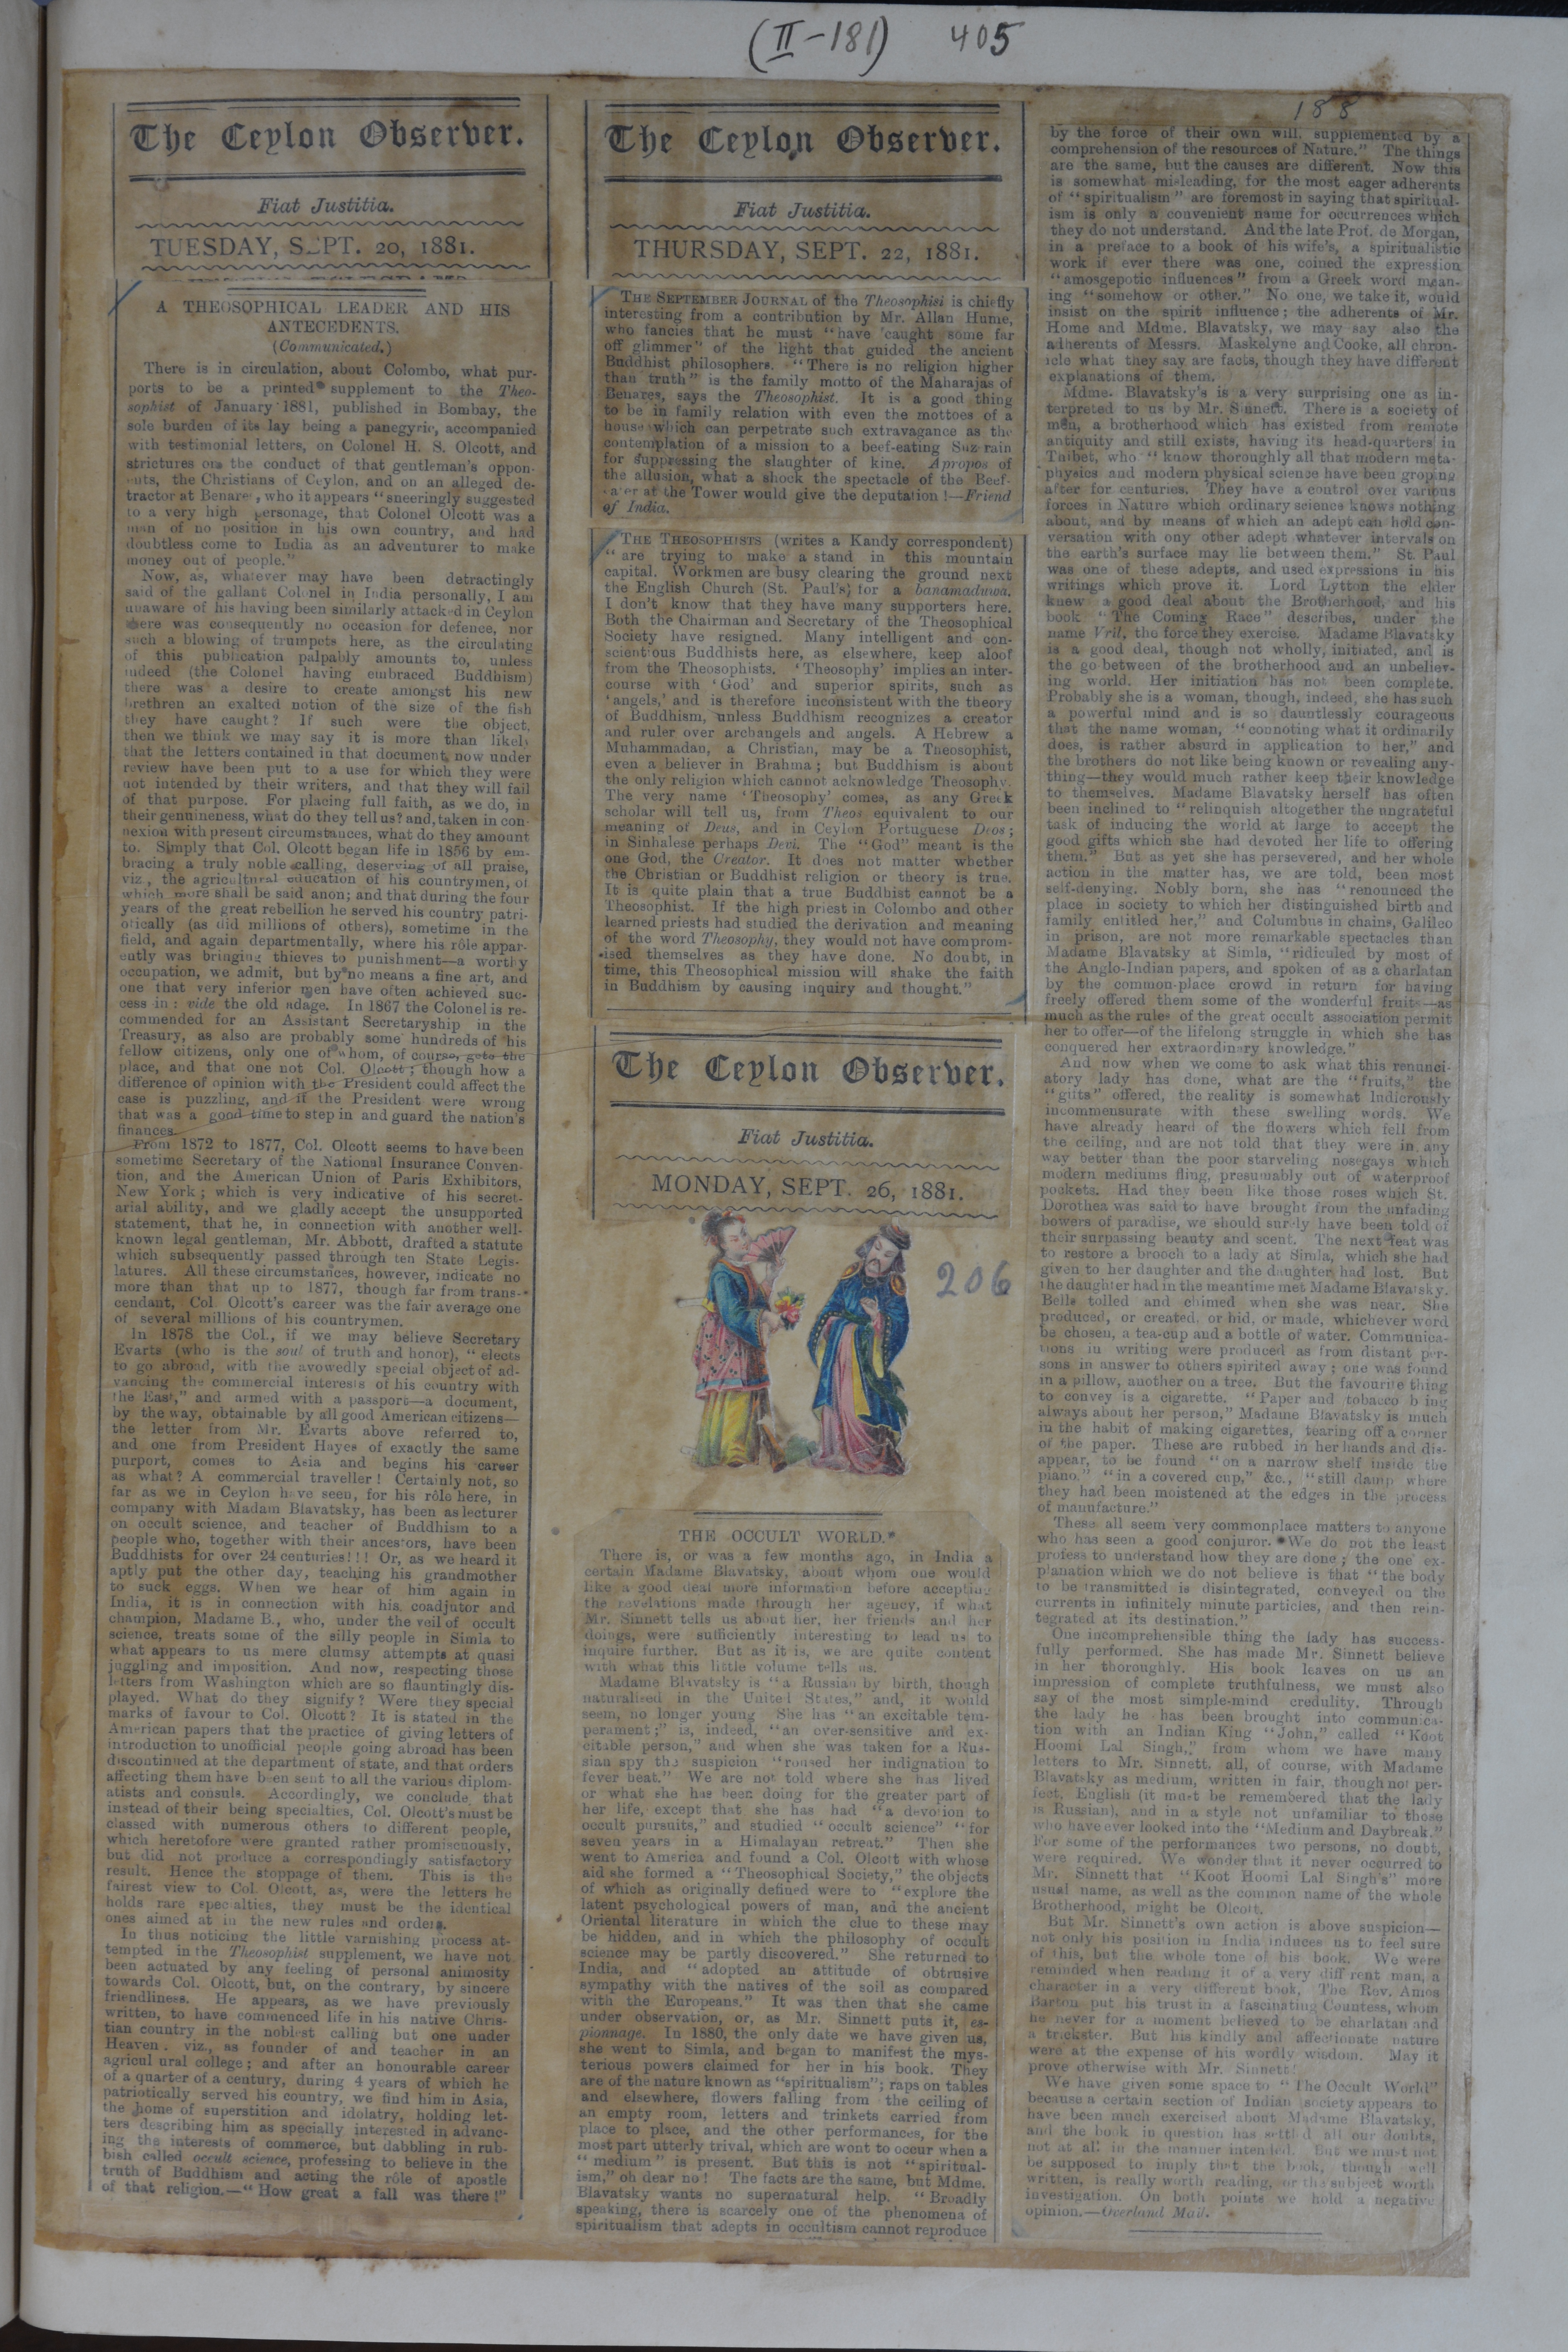 (II-181) 405
188
The Ceylon Observer.
Fiat Justitia.
TUESDAY, SEPT. 20, 1881.
A THEOSOPHICAL LEADER AND HIS
ANTECEDENTS.
(Communicated.)
There is in circulation, about Colombo, what pur-
ports to be a printed supplement to the Theo-
sophist of January 1881, published in Bombay, the
sole burden of its lay being a panegyric, accompanied
with testimonial letters, on Colonel H. S. Olcott, and
strictures on the conduct of that gentleman's oppon-
ents, the Christians of Ceylon, and on an alleged de-
tractor at Benares, who it appears "sneeringly suggested
to a very high personage, that Colonel Olcott was a
man of no position in his own country, and had
doubtless come to India as an adventurer to make
money out of people."
Now, as, whatever may have been detractingly
said of the gallant Colonel in India personally, I am
unaware of his having been similarly attacked in Ceylon
there was consequently no occasion for defence, nor
such a blowing of trumpets here, as the circulating
of this publication palpably amounts to, unless
indeed (the Colonel having embraced Buddhism)
there was a desire to create amongst his new
brethren an exalted notion of the size of the fish
they have caught? If such were the object,
then we think we may say it is more than likely
that the letters contained in that document now under
review have been put to a use for which they were
not intended by their writers, and that they will fail
of that purpose. For placing full faith, as we do, in
their genuineness, what do they tell us? and, taken in con-
nexion with present circumstances, what do they amount
to. Simply that Col. Olcott began life in 1856 by em-
bracing a truly noble calling, deserving of all praise,
viz., the agricultural education of his countrymen, of
which more shall be said anon; and that during the four
years of the great rebellion he served his country patri-
otically (as did millions of others), sometime in the
field, and again departmentally, where his rôle appar-
ently was bringing thieves to punishment—a worthy
occupation, we admit, but by no means a fine art, and
one that very inferior men have often achieved suc-
cess in: vide the old adage. In 1867 the Colonel is re-
commended for an Assistant Secretaryship in the
Treasury, as also are probably some hundreds of his
fellow citizens, only one of whom, of course, gets the
place, and that one not Col. Olcott; though how a
difference of opinion with the President could affect the
case is puzzling, and if the President were wrong
that was a good time to step in and guard the nation's
finances.
From 1872 to 1877, Col. Olcott seems to have been
sometime Secretary of the National Insurance Conven-
tion, and the American Union of Paris Exhibitors,
New York; which is very indicative of his secret-
arial ability, and we gladly accept the unsupported
statement, that he, in connection with another well-
known legal gentleman, Mr. Abbott, drafted a statute
which subsequently passed through ten State Legis-
latures. All these circumstances, however, indicate no
more than that up to 1877, though far from trans-
cendant, Col. Olcott's career was the fair average one
of several millions of his countrymen.
In 1878 the Col., if we may believe Secretary
Evarts (who is the soul of truth and honor), "elects
to go abroad, with the avowedly special object of ad-
vancing the commercial interests of his country with
the East," and armed with a passport—a document,
by the way, obtainable by all good American citizens—
the letter from Mr. Evarts above referred to,
and one from President Hayes of exactly the same
purport, comes to Asia and begins his career
as what? A commercial traveller! Certainly not, so
far as we in Ceylon have seen, for his rôle here, in
company with Madam Blavatsky, has been as lecturer
on occult science, and teacher of Buddhism to a
people who, together with their ancestors, have been
Buddhists for over 24 centuries!!! Or, as we heard it
aptly put the other day, teaching his grandmother
to suck eggs. When we hear of him again in
India, it is in connection with his coadjutor and
champion, Madame B., who, under the veil of occult
science, treats some of the silly people in Simla to
what appears to us mere clumsy attempts at quasi
juggling and imposition. And now, respecting those
letters from Washington which are so flauntingly dis-
played. What do they signify? Were they special
marks of favour to Col. Olcott? It is stated in the
American papers that the practice of giving letters of
introduction to unofficial people going abroad has been
discontinued at the department of state, and that orders
affecting them have been sent to all the various diplom-
atists and consuls. Accordingly, we conclude that
instead of their being specialties, Col. Olcott's must be
classed with numerous others to different people,
which heretofore were granted rather promiscuously,
but did not produce a correspondingly satisfactory
result. Hence the stoppage of them. This is the
fairest view to Col. Olcott, as, were the letters he
holds rare specialties, they must be the identical
ones aimed at in the new rules and orders.
In thus noticing the little varnishing process at-
tempted in the Theosophist supplement, we have not
been actuated by any feeling of personal animosity
towards Col. Olcott, but, on the contrary, by sincere
friendliness. He appears, as we have previously
written, to have commenced life in his native Chris-
tian country in the noblest calling but one under
Heaven. viz., as founder of and teacher in an
agricul ural college; and after an honourable career
of a quarter of a century, during 4 years of which he
patriotically served his country, we find him in Asia,
the home of superstition and idolatry, holding let-
ters describing him as specially interested in advanc-
ing the interests of commerce, but dabbling in rub-
bish called occult science, professing to believe in the
truth of Buddhism and acting the rôle of apostle
of that religion.—"How great a fall was there!"
The Ceylon Observer.
Fiat Justitia.
THURSDAY, SEPT. 22, 1881.
THE SEPTEMBER JOURNAL of the Theosophist is chiefly
interesting from a contribution by Mr. Allan Hume,
who fancies that he must "have caught some far
off glimmer" of the light that guided the ancient
Buddhist philosophers. "There is no religion higher
than truth" is the family motto of the Maharajas of
Benares, says the Theosophist. It is a good thing
to be in family relation with even the mottoes of a
house which can perpetrate such extravagance as the
contemplation of a mission to a beef-eating Suz rain
for suppressing the slaughter of kine. Apropos of
the allusion, what a shock the spectacle of the Beef-
eater at the Tower would give the deputation!—Friend
of India.
THE THEOSOPHISTS (writes a Kandy correspondent)
"are trying to make a stand in this mountain
capital. Workmen are busy clearing the ground next
the English Church (St. Paul's) for a banamaduwa.
I don't know that they have many supporters here.
Both the Chairman and Secretary of the Theosophical
Society have resigned. Many intelligent and con-
scientious Buddhists here, as elsewhere, keep aloof
from the Theosophists. 'Theosophy' implies an inter-
course with 'God' and superior spirits, such as
'angels,' and is therefore inconsistent with the theory
of Buddhism, unless Buddhism recognizes a creator
and ruler over archangels and angels. A Hebrew a
Muhammadan, a Christian, may be a Theosophist,
even a believer in Brahma; but Buddhism is about
the only religion which cannot acknowledge Theosophy.
The very name 'Theosophy' comes, as any Greek
scholar will tell us, from Theos equivalent to our
meaning of Deus, and in Ceylon Portuguese Deos;
in Sinhalese perhaps Devi. The "God" meant is the
one God, the Creator. It does not matter whether
the Christian or Buddhist religion or theory is true.
It is quite plain that a true Buddhist cannot be a
Theosophist. If the high priest in Colombo and other
learned priests had studied the derivation and meaning
of the word Theosophy, they would not have comprom-
ised themselves as they have done. No doubt, in
time, this Theosophical mission will shake the faith
in Buddhism by causing inquiry and thought."
The Ceylon Observer.
Fiat Justitia.
MONDAY, SEPT. 26, 1881.
206
THE OCCULT WORLD.*
There is, or was a few months ago, in India a
certain Madame Blavatsky, about whom one would
like a good deal more information before accepting
the revelations made through her agency, if what
Mr. Sinnett tells us about her, her friends and her
doings, were sufficiently interesting to lead us to
inquire further. But as it is, we are quite content
with what this little volume tells us.
Madame Blavatsky is "a Russian by birth, though
naturalised in the United States," and, it would
seem, no longer young She has "an excitable tem-
perament;" is, indeed, "an over-sensitive and ex-
citable person," and when she was taken for a Rus-
sian spy the suspicion "roused her indignation to
fever heat." We are not told where she has lived
or what she has been doing for the greater part of
her life, except that she has had "a devotion to
occult pursuits," and studied "occult science" "for
seven years in a Himalayan retreat." Then she
went to America and found a Col. Olcott with whose
aid she formed a "Theosophical Society," the objects
of which as originally defined were to "explore the
latent psychological powers of man, and the ancient
Oriental literature in which the clue to these may
be hidden, and in which the philosophy of occult
science may be partly discovered." She returned to
India, and "adopted an attitude of obtrusive
sympathy with the natives of the soil as compared
with the Europeans." It was then that she came
under observation, or, as Mr. Sinnett puts it, es-
pionnage. In 1880, the only date we have given us,
she went to Simla, and began to manifest the mys-
terious powers claimed for her in his book. They
are of the nature known as "spiritualism"; raps on tables
and elsewhere, flowers falling from the ceiling of
an empty room, letters and trinkets carried from
place to place, and the other performances, for the
most part utterly trival, which are wont to occur when a
"medium" is present. But this is not "spiritual-
ism," oh dear no! The facts are the same, but Mdme.
Blavatsky wants no supernatural help. "Broadly
speaking, there is scarcely one of the phenomena of
spiritualism that adepts in occultism cannot reproduce
by the force of their own will, supplemented by a
comprehension of the resources of Nature." The things
are the same, but the causes are different. Now this
is somewhat misleading, for the most eager adherents
of "spiritualism" are foremost in saying that spiritual-
ism is only a convenient name for occurrences which
they do not understand. And the late Prof. de Morgan,
in a preface to a book of his wife's, a spiritualistic
work if ever there was one, coined the expression
"amosgepotic influences" from a Greek word mean-
ing "somehow or other." No one, we take it, would
insist on the spirit influence; the adherents of Mr.
Home and Mdme. Blavatsky, we may say also the
adherents of Messrs. Maskelyne and Cooke, all chron-
icle what they say are facts, though they have different
explanations of them.
Mdme. Blavatsky's is a very surprising one as in-
terpreted to us by Mr. Sinnett. There is a society of
men, a brotherhood which has existed from remote
antiquity and still exists, having its head-quarters in
Thibet, who "know thoroughly all that modern meta-
physics and modern physical science have been groping
after for centuries. They have a control over various
forces in Nature which ordinary science knows nothing
about, and by means of which an adept can hold con-
versation with ony other adept whatever intervals on
the earth's surface may lie between them." St. Paul
was one of these adepts, and used expressions in his
writings which prove it. Lord Lytton the elder
knew a good deal about the Brotherhood, and his
book "The Coming Race" describes, under the
name Vril, the force they exercise. Madame Blavatsky
is a good deal, though not wholly, initiated, and is
the go between of the brotherhood and an unbeliev-
ing world. Her initiation has not been complete.
Probably she is a woman, though, indeed, she has such
a powerful mind and is so dauntlessly courageous
that the name woman, "connoting what it ordinarily
does, is rather absurd in application to her," and
the brothers do not like being known or revealing any-
thing—they would much rather keep their knowledge
to themselves. Madame Blavatsky herself has often
been inclined to "relinquish altogether the ungrateful
task of inducing the world at large to accept the
good gifts which she had devoted her life to offering
them." But as yet she has persevered, and her whole
action in the matter has, we are told, been most
self-denying. Nobly born, she has "renounced the
place in society to which her distinguished birth and
family entitled her," and Columbus in chains, Galileo
in prison, are not more remarkable spectacles than
Madame Blavatsky at Simla, "ridiculed by most of
the Anglo-Indian papers, and spoken of as a charlatan
by the common-place crowd in return for having
freely offered them some of the wonderful fruits—as
much as the rules of the great occult association permit
her to offer—of the lifelong struggle in which she has
conquered her extraordinary knowledge."
And now when we come to ask what this renunci-
atory lady has done, what are the "fruits," the
"gifts" offered, the reality is somewhat ludicrously
incommensurate with these swelling words. We
have already heard of the flowers which fell from
the ceiling, and are not told that they were in any
way better than the poor starveling nosegays which
modern mediums fling, presumably out of waterproof
pockets. Had they been like those roses which St.
Dorothea was said to have brought from the unfading
bowers of paradise, we should surely have been told of
their surpassing beauty and scent. The next feat was
to restore a brooch to a lady at Simla, which she had
given to her daughter and the daughter had lost. But
the daughter had in the meantime met Madame Blavatsky.
Bells tolled and chimed when she was near. She
produced, or created, or hid, or made, whichever word
be chosen, a tea-cup and a bottle of water. Communica-
tions in writing were produced as from distant per-
sons in answer to others spirited away; one was found
in a pillow, another on a tree. But the favourite thing
to convey is a cigarette. "Paper and tobacco b ing
always about her person," Madame Blavatsky is much
in the habit of making cigarettes, tearing off a corner
of the paper. These are rubbed in her hands and dis-
appear, to be found "on a narrow shelf inside the
piano," "in a covered cup," &c., "still damp where
they had been moistened at the edges in the process
of manufacture."
These all seem very commonplace matters to anyone
who has seen a good conjuror. We do not the least
profess to understand how they are done; the one ex-
planation which we do not believe is that "the body
to be transmitted is disintegrated, conveyed on the
currents in infinitely minute particles, and then rein-
tegrated at its destination."
One incomprehensible thing the lady has success-
fully performed. She has made Mr. Sinnett believe
in her thoroughly. His book leaves on us an
impression of complete truthfulness, we must also
say of the most simple-mind credulity. Through
the lady he has been brought into communica-
tion with an Indian King "John," called "Koot
Hoomi Lal Singh," from whom we have many
letters to Mr. Sinnett, all, of course, with Madame
Blavatsky as medium, written in fair, though not per-
fect, English (it must be remembered that the lady
is Russian), and in a style not unfamiliar to those
who have ever looked into the "Medium and Daybreak."
For some of the performances two persons, no doubt,
were required. We wonder that it never occurred to
Mr. Sinnett that "Koot Hoomi Lal Singh's" more
usual name, as well as the common name of the whole
Brotherhood, might be Olcott.
But Mr. Sinnett's own action is above suspicion—
not only his position in India induces us to feel sure
of this, but the whole tone of his book. We were
reminded when reading it of a very diff rent man, a
character in a very different book, The Rev. Amos
Barton put his trust in a fascinating Countess, whom
he never for a moment believed to be charlatan and
a trickster. But his kindly and affectionate nature
were at the expense of his wordly wisdom. May it
prove otherwise with Mr. Sinnett!
We have given some space to "The Occult World"
because a certain section of Indian society appears to
have been much exercised about Madame Blavatsky,
and the book in question has settl d all our doubts,
not at all in the manner intended. But we must not
be supposed to imply that the book, though well
written, is really worth reading, or the subject worth
investigation. On both points we hold a negative
opinion.—Overland Mail.